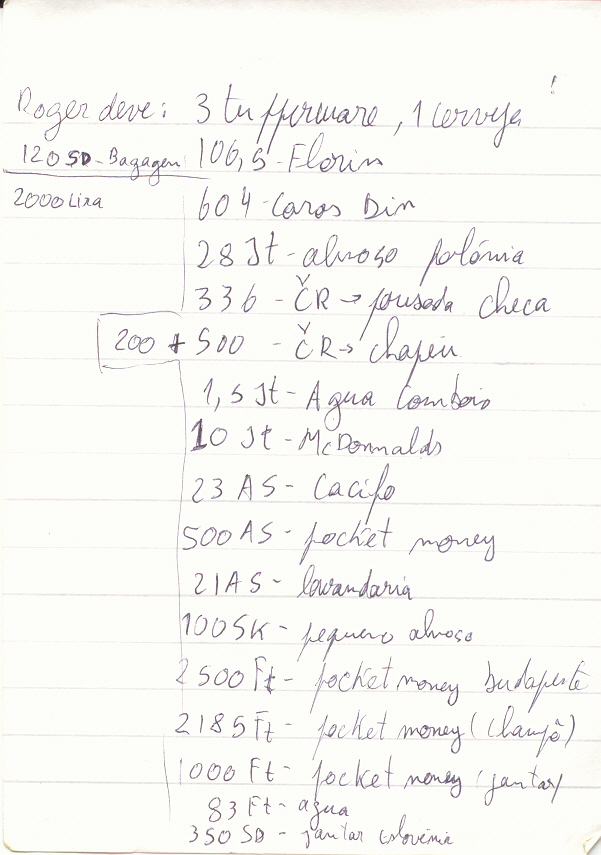 Roger deve: 3 tupperware, 1 cerveja !
120 SD - Bagagem 106,5 - Florin
2000 Lira 604 - Coroas Din
28 Jt - almoço polónia
336 - ČR → pousada checa
200 + 500 - ČR → chapéu
1,5 Jt - Agua Comboio
10 Jt - McDonnalds
23 AS - Cacifo
500 AS - pocket money
21 AS - lavandaria
100 SK - pequeno almoço
2500 Ft - pocket money budapeste
2185 Ft - pocket money (champô)
1000 Ft - pocket money (jantar)
83 Ft - agua
350 SD - jantar eslovénia